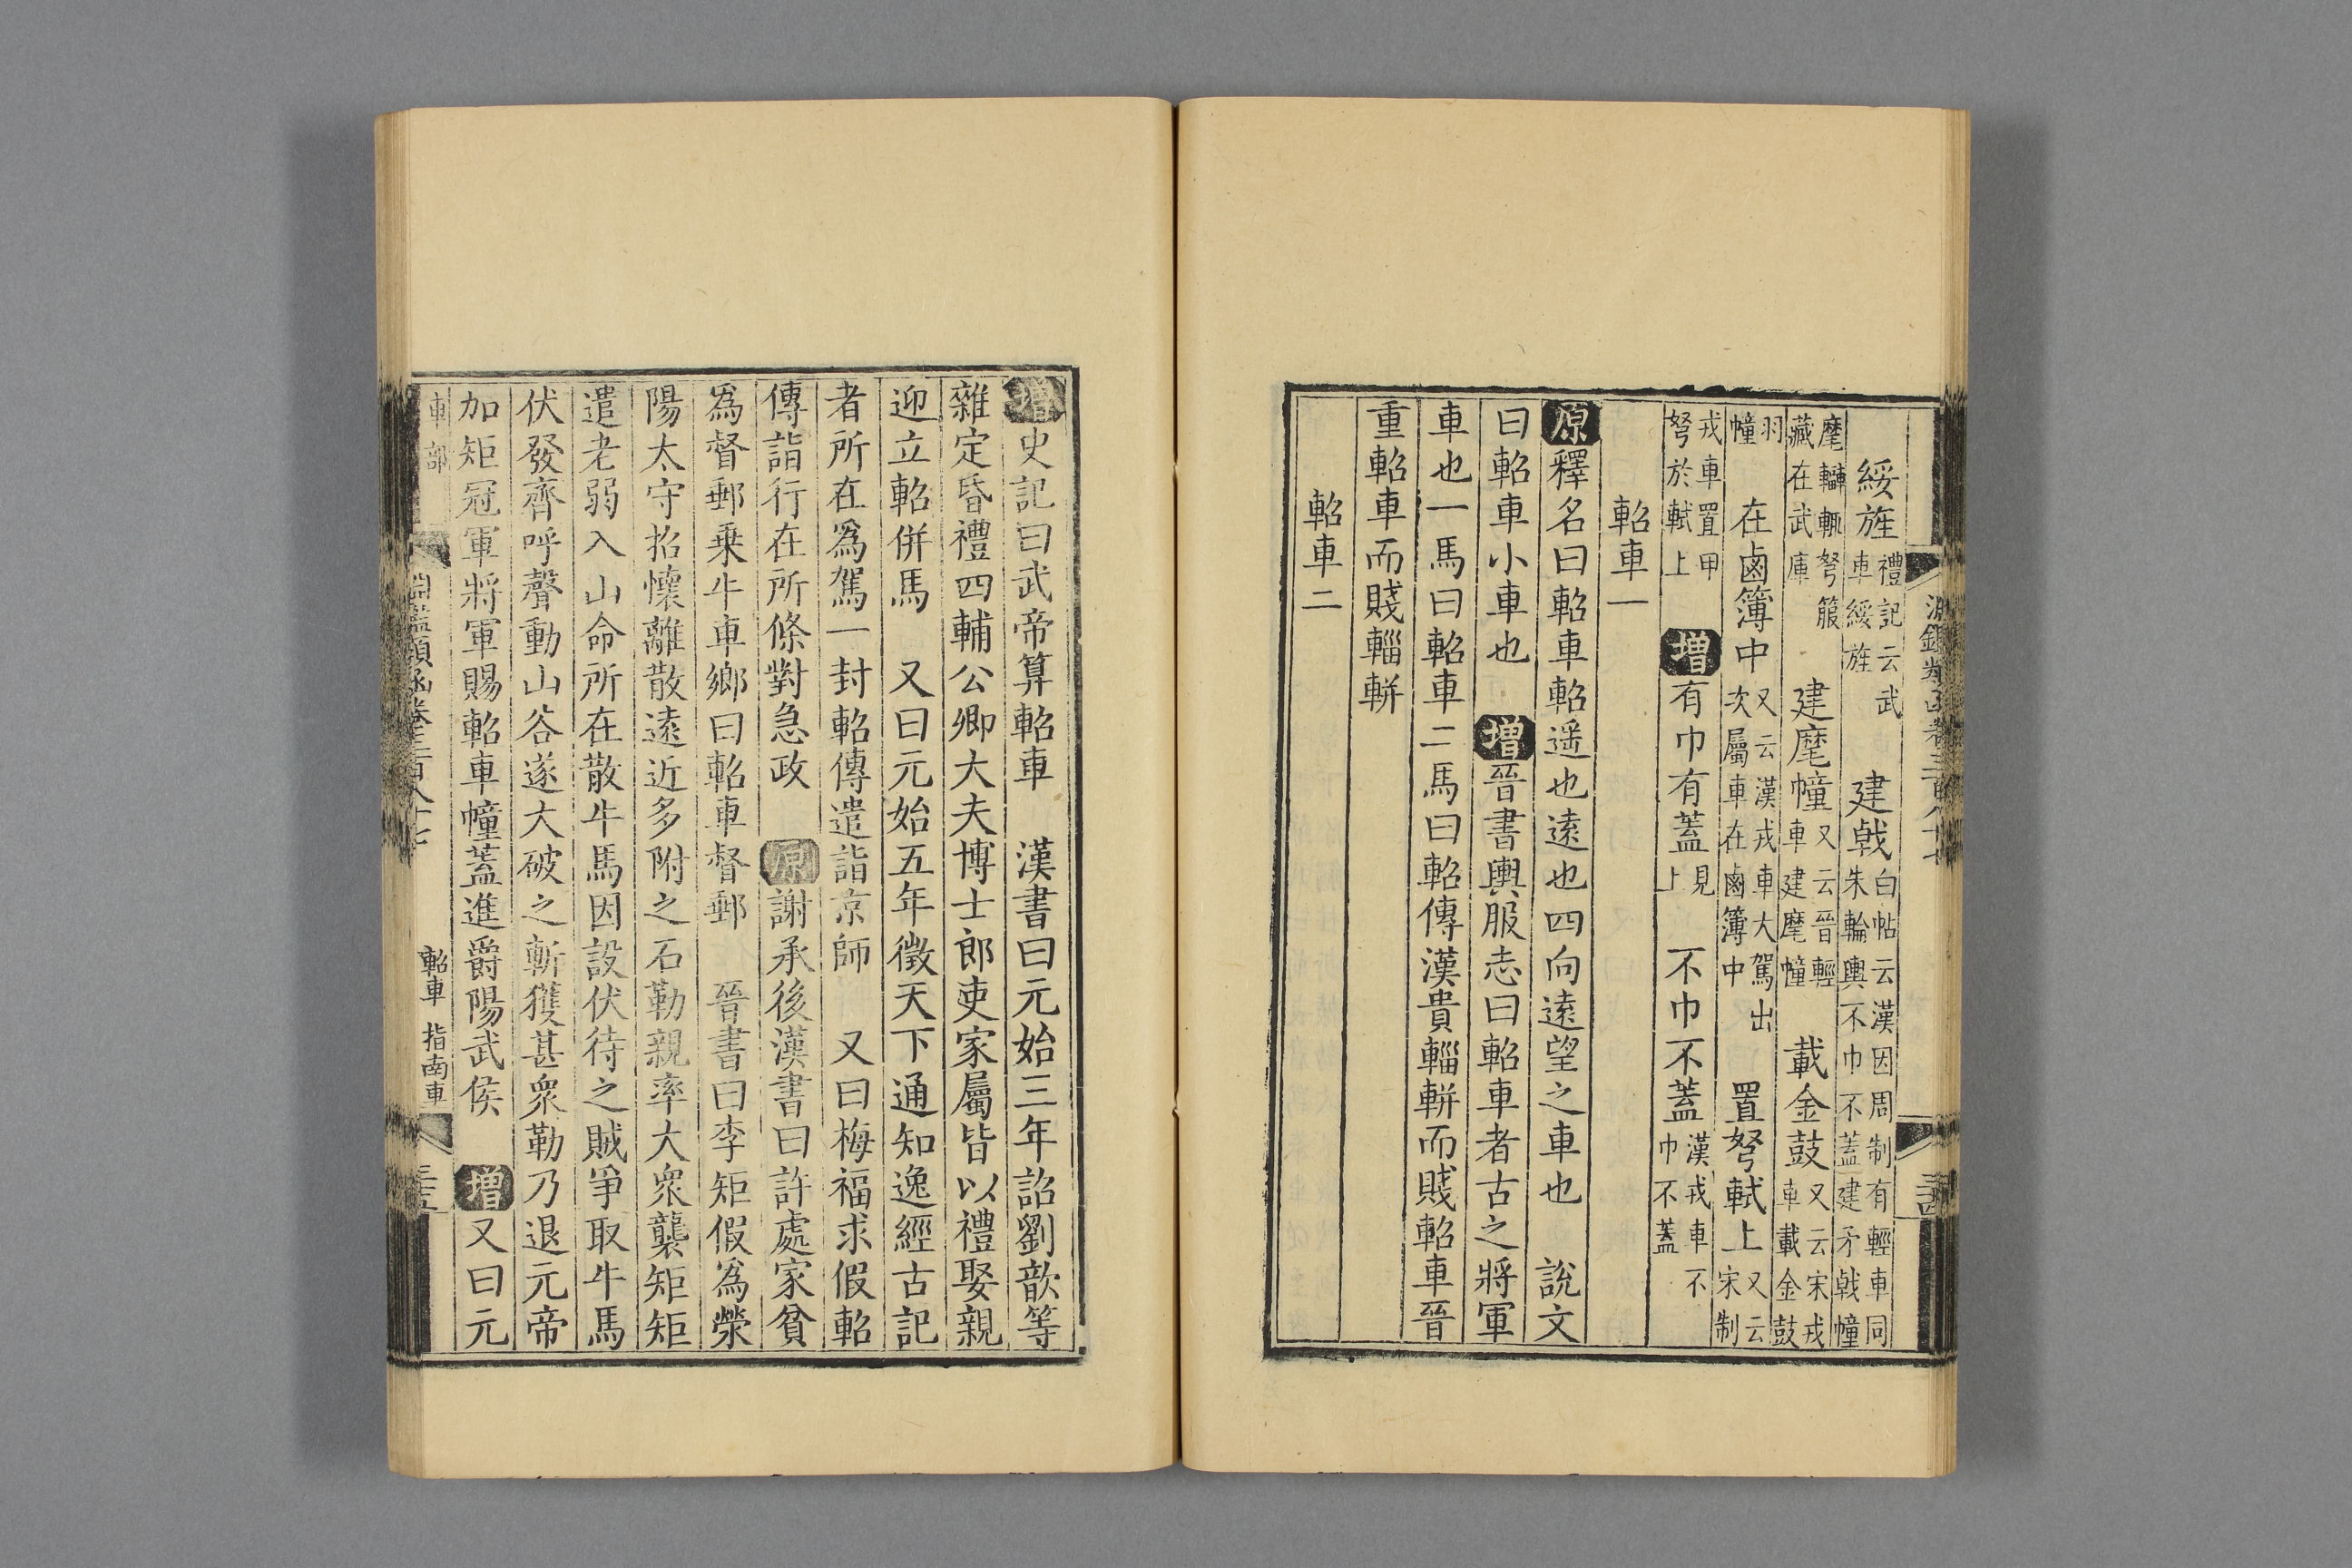 淵鑑類函卷三百八十七 三十四
綏旌禮記云武車綏旌 建戟白帖云漢因周制有輕車同朱輪輿不巾不蓋建矛戟幢
麾轓輒弩箙藏在武庫 建麾幢又云晉輕車建麾幢 載金鼓又云宋戎車載金鼓
羽幢 在鹵簿中又云漢戎車大駕出次屬車在鹵簿中 置弩軾上又云宋制
戎車置甲弩於軾上 增有巾有蓋見上 不巾不蓋漢戎車不巾不蓋
軺車一
原釋名曰軺車軺遥也遠也四向遠望之車也 說文
曰軺車小車也 增晉書輿服志曰軺車者古之將軍
車也一馬曰軺車二馬曰軺傳漢貴輜軿而賤軺車晉
重軺車而賤輜軿
軺車二
增史記曰武帝算軺車 漢書曰元始三年詔劉歆等
雜定昏禮四輔公卿大夫博士郎吏家屬皆以禮娶親
迎立軺併馬 又曰元始五年徵天下通知逸經古記
者所在爲駕一封軺傳遣詣京師 又曰梅福求假軺
傳詣行在所條對急政 原謝承後漢書曰許處家貧
爲督郵乗牛車鄉曰軺車督郵 晉書曰李矩假爲滎
陽太守招懷離散遠近多附之石勒親率大衆襲矩矩
遣老弱入山命所在散牛馬因設伏待之賊爭取牛馬
伏發齊呼聲動山谷遂大破之斬獲甚衆勒乃退元帝
加矩冠軍將軍賜軺車幢蓋進爵陽武侯 增又曰元
車部 淵鑑類函卷三百八十七 軺車 指南車 三十五